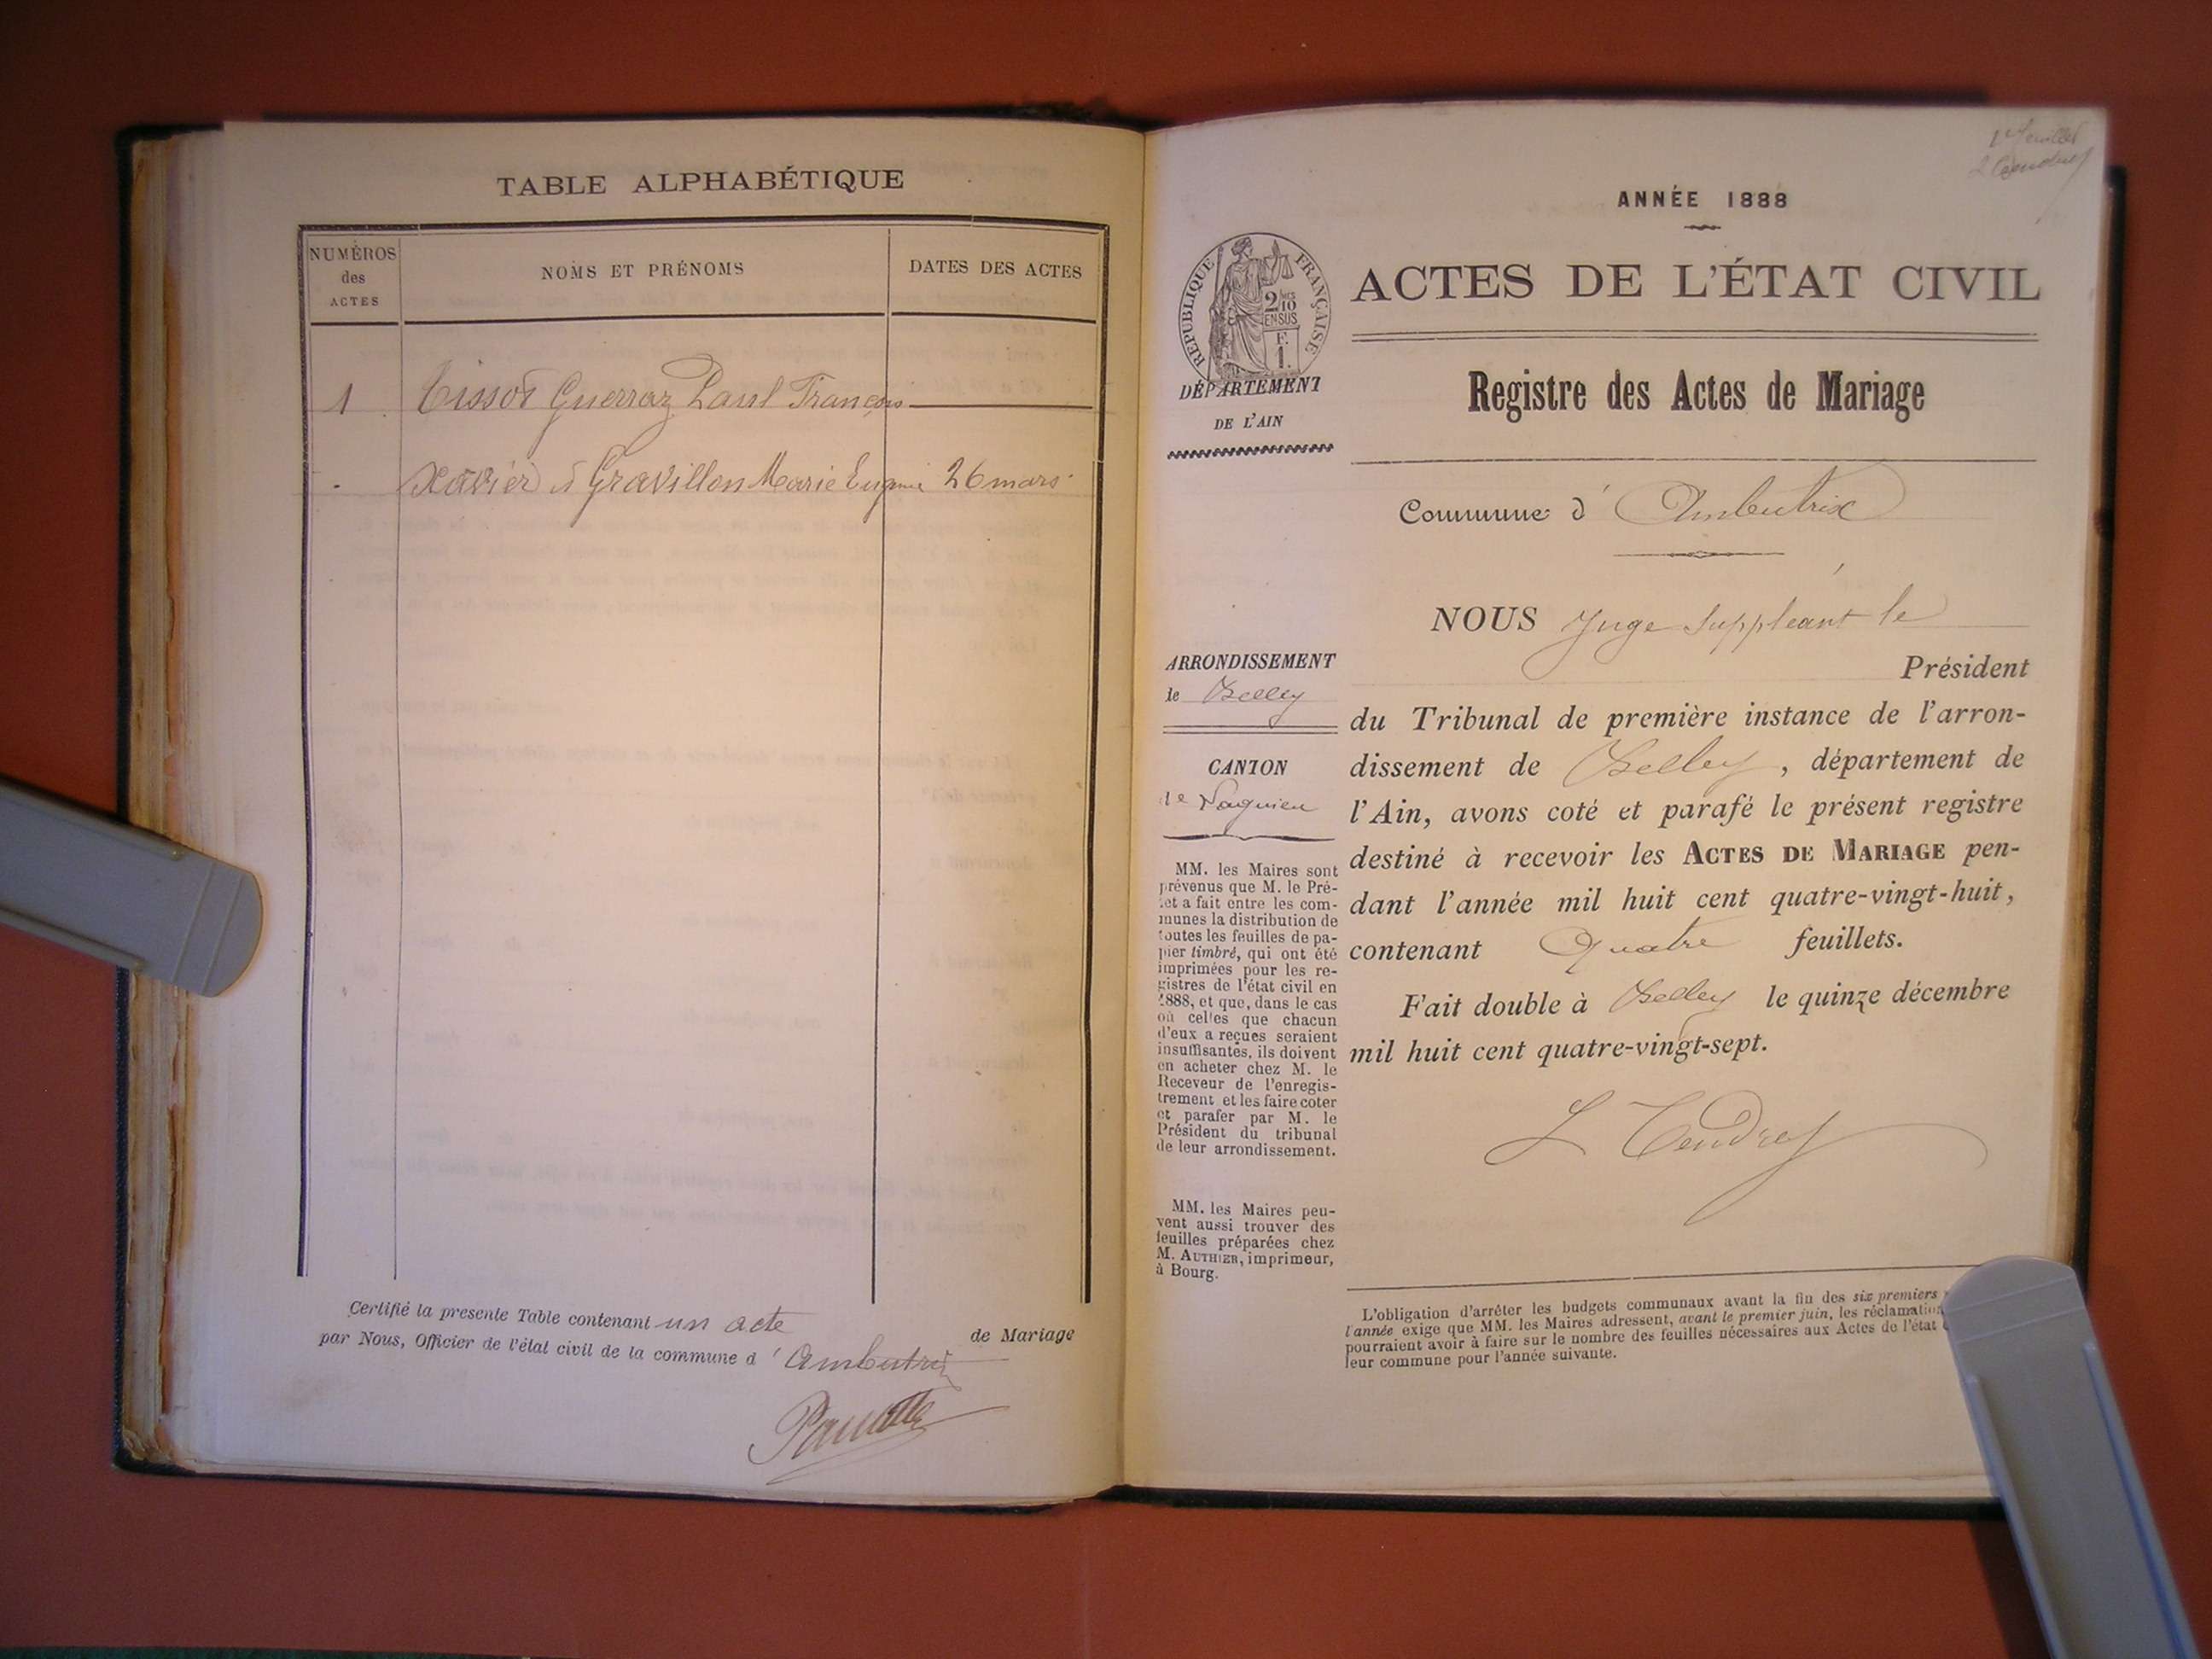 TABLE ALPHABÉTIQUE
NUMÉROS
des
ACTES
NOMS ET PRÉNOMS
DATES DES ACTES
1 Tissot Guerraz Paul François
Xavier & Gravillon Marie Eugnie 26 mars
Certifié la presente Table contenant un acte
de Mariage
par Nous, Officier de l'état civil de la commune d' Ambutrix
1er feuillet
L Tendret
ANNÉE 1888
RÉPUBLIQUE FRANÇAISE
2/10 EN SUS
F. 1.
DÉPARTEMENT
DE L'AIN
ACTES DE L'ÉTAT CIVIL
Registre des Actes de Mariage
Commune d' Ambutrix
ARRONDISSEMENT
de Belley
CANTON
de Lagnieu
MM. les Maires sont
prévenus que M. le Pré-
fet a fait entre les com-
munes la distribution de
toutes les feuilles de pa-
pier timbré, qui ont été
imprimées pour les re-
gistres de l'état civil en
1888, et que, dans le cas
où celles que chacun
d'eux a reçues seraient
insuffisantes, ils doivent
en acheter chez M. le
Receveur de l'enregis-
trement et les faire coter
et parafer par M. le
Président du tribunal
de leur arrondissement.
MM. les Maires peu-
vent aussi trouver des
feuilles préparées chez
M. AUTHIER, imprimeur,
à Bourg.
NOUS Juge Suppléant le
Président
du Tribunal de première instance de l'arron-
dissement de Belley, département de
l'Ain, avons coté et parafé le présent registre
destiné à recevoir les ACTES DE MARIAGE pen-
dant l'année mil huit cent quatre-vingt-huit,
contenant Quatre feuillets.
Fait double à Belley le quinze décembre
mil huit cent quatre-vingt-sept.
L Tendret
L'obligation d'arrêter les budgets communaux avant la fin des six premiers
l'année exige que MM. les Maires adressent, avant le premier juin, les réclamatio
pourraient avoir à faire sur le nombre des feuilles nécessaires aux Actes de l'état
leur commune pour l'année suivante.